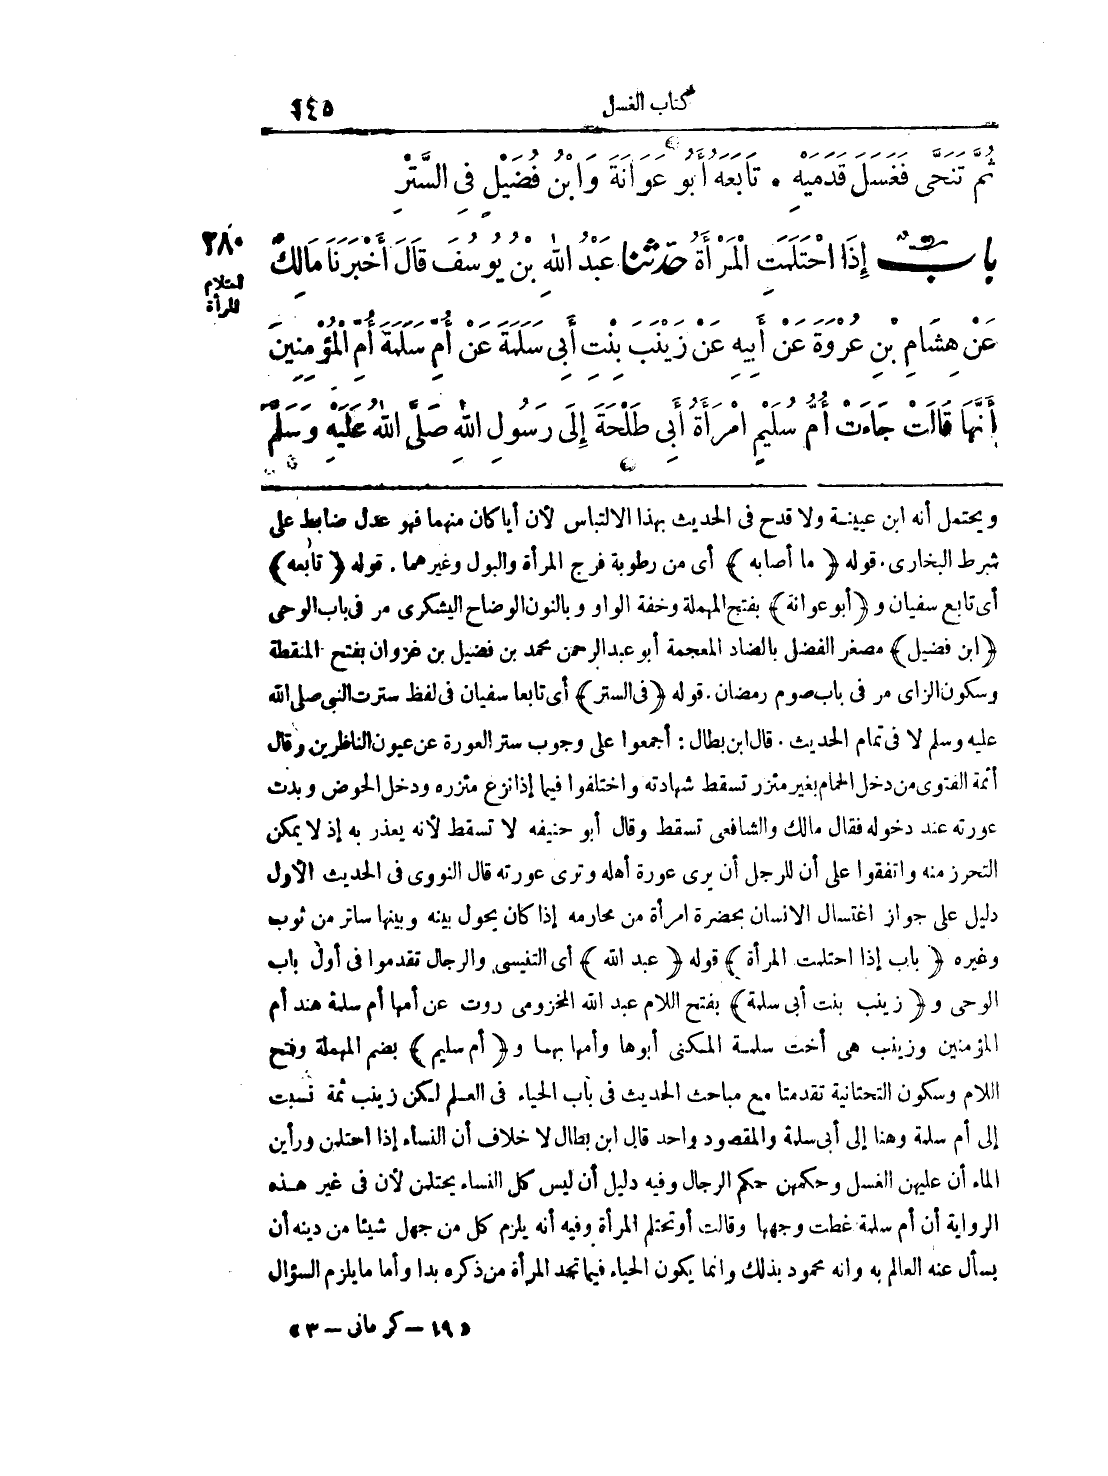 كتاب الغسل ١٤٥
ثُمَّ تَنَحَّى فَغَسَلَ قَدَمَيْهِ . تَابَعَهُ أَبُو عَوَانَةَ وَابْنُ فُضَيْلٍ فِى السَّتْرِ
بَابٌ إِذَا احْتَلَمَتِ الْمَرْأَةُ حَدَّثَنَا عَبْدُ اللهِ بْنُ يُوسُفَ قَالَ أَخْبَرَنَا مَالِكٌ
٢٨٠
احتلام
المرأة
عَنْ هِشَامِ بْنِ عُرْوَةَ عَنْ أَبِيهِ عَنْ زَيْنَبَ بِنْتِ أَبِى سَلَمَةَ عَنْ أُمِّ سَلَمَةَ أُمِّ الْمُؤْمِنِينَ
أَنَّهَا قَالَتْ جَاءَتْ أُمُّ سُلَيْمٍ امْرَأَةُ أَبِى طَلْحَةَ إِلَى رَسُولِ اللهِ صَلَّى اللهُ عَلَيْهِ وَسَلَّمَ
ويحتمل أنه ابن عيينة ولا قدح فى الحديث بهذا الالتباس لأن أيا كان منهما فهو عدل ضابط على
شرط البخارى . قوله ﴿ ما أصابه ﴾ أى من رطوبة فرج المرأة والبول وغيرهما . قوله ﴿ تابعه ﴾
أى تابع سفيان و ﴿أبو عوانة﴾ بفتح المهملة وخفة الواو وبالنون الوضاح اليشكرى مر فى باب الوحى
﴿ابن فضيل﴾ مصغر الفضل بالضاد المعجمة أبو عبد الرحمن محمد بن فضيل بن غزوان بفتح المنقطة
وسكون الزاى مر فى باب صوم رمضان . قوله ﴿فى الستر﴾ أى تابعا سفيان فى لفظ سترت النبى صلى الله
عليه وسلم لا فى تمام الحديث . قال ابن بطال : أجمعوا على وجوب ستر العورة عن عيون الناظرين وقال
أئمة الفتوى من دخل الحمام بغير مئزر تسقط شهادته واختلفوا فيما إذا نزع مئزره ودخل الحوض وبدت
عورته عند دخوله فقال مالك والشافعى تسقط وقال أبو حنيفه لا تسقط لأنه يعذر به إذ لا يمكن
التحرز منه واتفقوا على أن للرجل أن يرى عورة أهله وترى عورته قال النووى فى الحديث الأول
دليل على جواز اغتسال الانسان بحضرة امرأة من محارمه إذا كان يحول بينه وبينها ساتر من ثوب
وغيره ﴿ باب إذا احتلمت المرأة ﴾ قوله ﴿ عبد الله ﴾ أى التنيسى والرجال تقدموا فى أول باب
الوحى و ﴿ زينب بنت أبى سلمة﴾ بفتح اللام عبد الله المخزومى روت عن أمها أم سلمة هند أم
المؤمنين وزينب هى أخت سلمة المكنى أبوها وأمها بهما و ﴿ أم سليم ﴾ بضم المهملة وفتح
اللام وسكون التحتانية تقدمتا مع مباحث الحديث فى باب الحياء فى العلم لكن زينب ثمة نسبت
إلى أم سلمة وهنا إلى أبى سلمة والمقصود واحد قال ابن بطال لا خلاف أن النساء إذا احتلمن ورأين
الماء أن عليهن الغسل وحكمهن حكم الرجال وفيه دليل أن ليس كل النساء يحتلمن لأن فى غير هذه
الرواية أن أم سلمة غطت وجهها وقالت أوتحتلم المرأة وفيه أنه يلزم كل من جهل شيئا من دينه أن
يسأل عنه العالم به وانه محمود بذلك وانما يكون الحياء فيما تجد المرأة من ذكره بدا وأما ما يلزم السؤال
« ١٩ – كرمانى – ٣ »